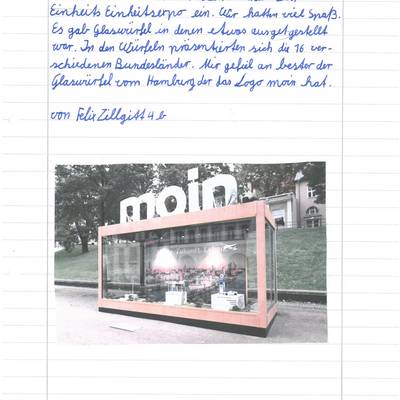 Einheits Einheitsexpo ein. Wir hatten viel Spaß.
Es gab Glaswürfel in denen etwas ausgestellt
war. In den Würfeln präsentierten sich die 16 ver-
schiedenen Bundesländer. Mir gefiel am besten der
Glaswürfel vom Hamburg der das Logo moin hat.
von Felix Zillgitt 4b
moin